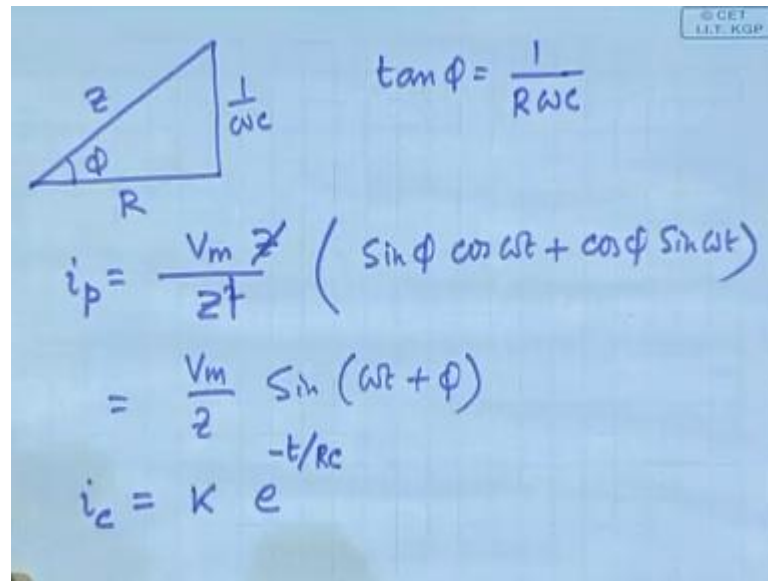 © CET
I.I.T. KGP
tan φ = 1/RωC
z
1/ωC
φ
R
i_p = Vm z/z² ( Sin φ cos ωt + cos φ Sin ωt)
= Vm/z Sin (ωt + φ)
i_c = K e^-t/RC